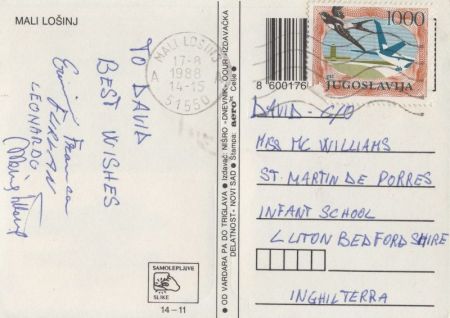 MALI LOŠINJ
MALI LOŠINJ
17-8
1988
14-15
A
51550
1000
JUGOSLAVIJA
8 600176
TO DAVID
BEST WISHES
LEONARDO
DAVID - C/O
MRS MC WILLIAMS
ST. MARTIN DE PORRES
INFANT SCHOOL
LUTON BEDFORDSHIRE
INGHILTERRA
SAMOLEPLJIVE
SLIKE
14-11
● OD VARDARA PA DO TRIGLAVA ● Izdavač: NIŠRO »DNEVNIK« OOUR IZDAVAČKA
DELATNOST - NOVI SAD ● Štampa: aero Celje ●